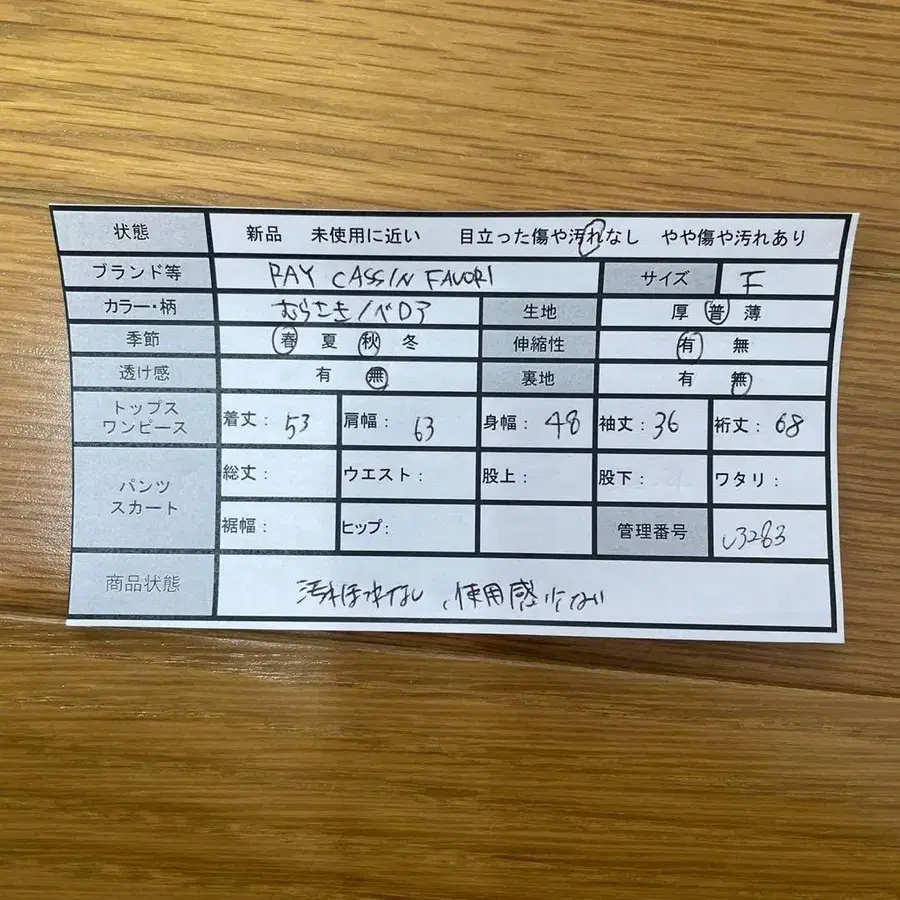 状態 新品 未使用に近い 目立った傷や汚れなし やや傷や汚れあり
ブランド等 RAY CASSIN FAVORI サイズ F
カラー・柄 むらさき/ベロア 生地 厚 普 薄
季節 春 夏 秋 冬 伸縮性 有 無
透け感 有 無 裏地 有 無
トップス ワンピース 着丈: 53 肩幅: 63 身幅: 48 袖丈: 36 裄丈: 68
パンツ スカート 総丈: ウエスト: 股上: 股下: ワタリ:
裾幅: ヒップ: 管理番号 し3283
商品状態 汚れほつれなし、使用感少ない